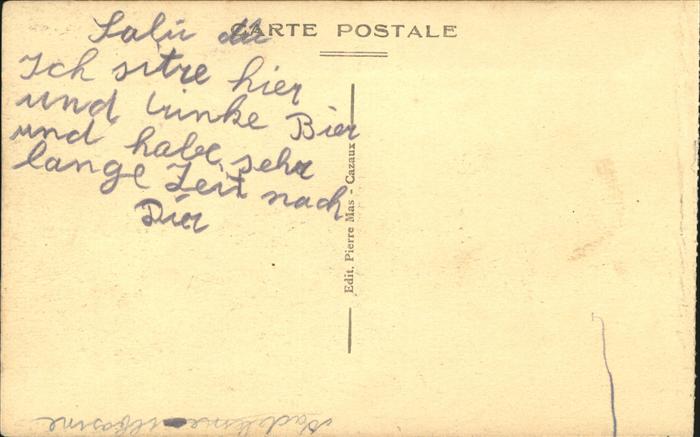 CARTE POSTALE
Salü du
Ich sitze hier
und trinke Bier
und habe sehr
lange Zeit nach
Dier
Edit. Pierre Mas - Cazaux